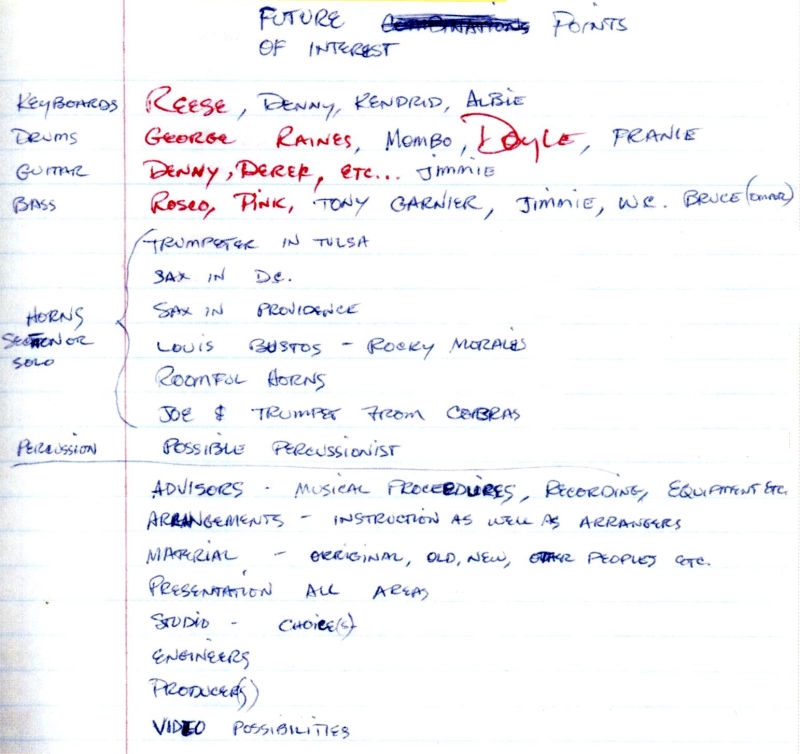 FUTURE COMBINATIONS POINTS
OF INTEREST
KEYBOARDS REESE, DENNY, KENDRID, ALBIE
DRUMS GEORGE RAINES, MOMBO, DOYLE, FRANIE
GUITAR DENNY, DEREK, ETC... JIMMIE
BASS ROSCO, PINK, TONY GARNIER, JIMMIE, W.C. BRUCE (OMAR)
TRUMPETER IN TULSA
SAX IN D.C.
SAX IN PROVIDENCE
HORNS
SECTION OR
SOLO
LOUIS BUSTOS - ROCKY MORALES
ROOMFUL HORNS
JOE & TRUMPET FROM COBRAS
PERCUSSION POSSIBLE PERCUSSIONIST
ADVISORS - MUSICAL PROCEEDURES, RECORDING, EQUIPMENT ETC.
ARRANGEMENTS - INSTRUCTION AS WELL AS ARRANGERS
MATERIAL - ORRIGINAL, OLD, NEW, OTHER PEOPLES ETC.
PRESENTATION ALL AREAS
STUDIO - CHOICE(S)
ENGINEERS
PRODUCER(S)
VIDEO POSSIBILITIES